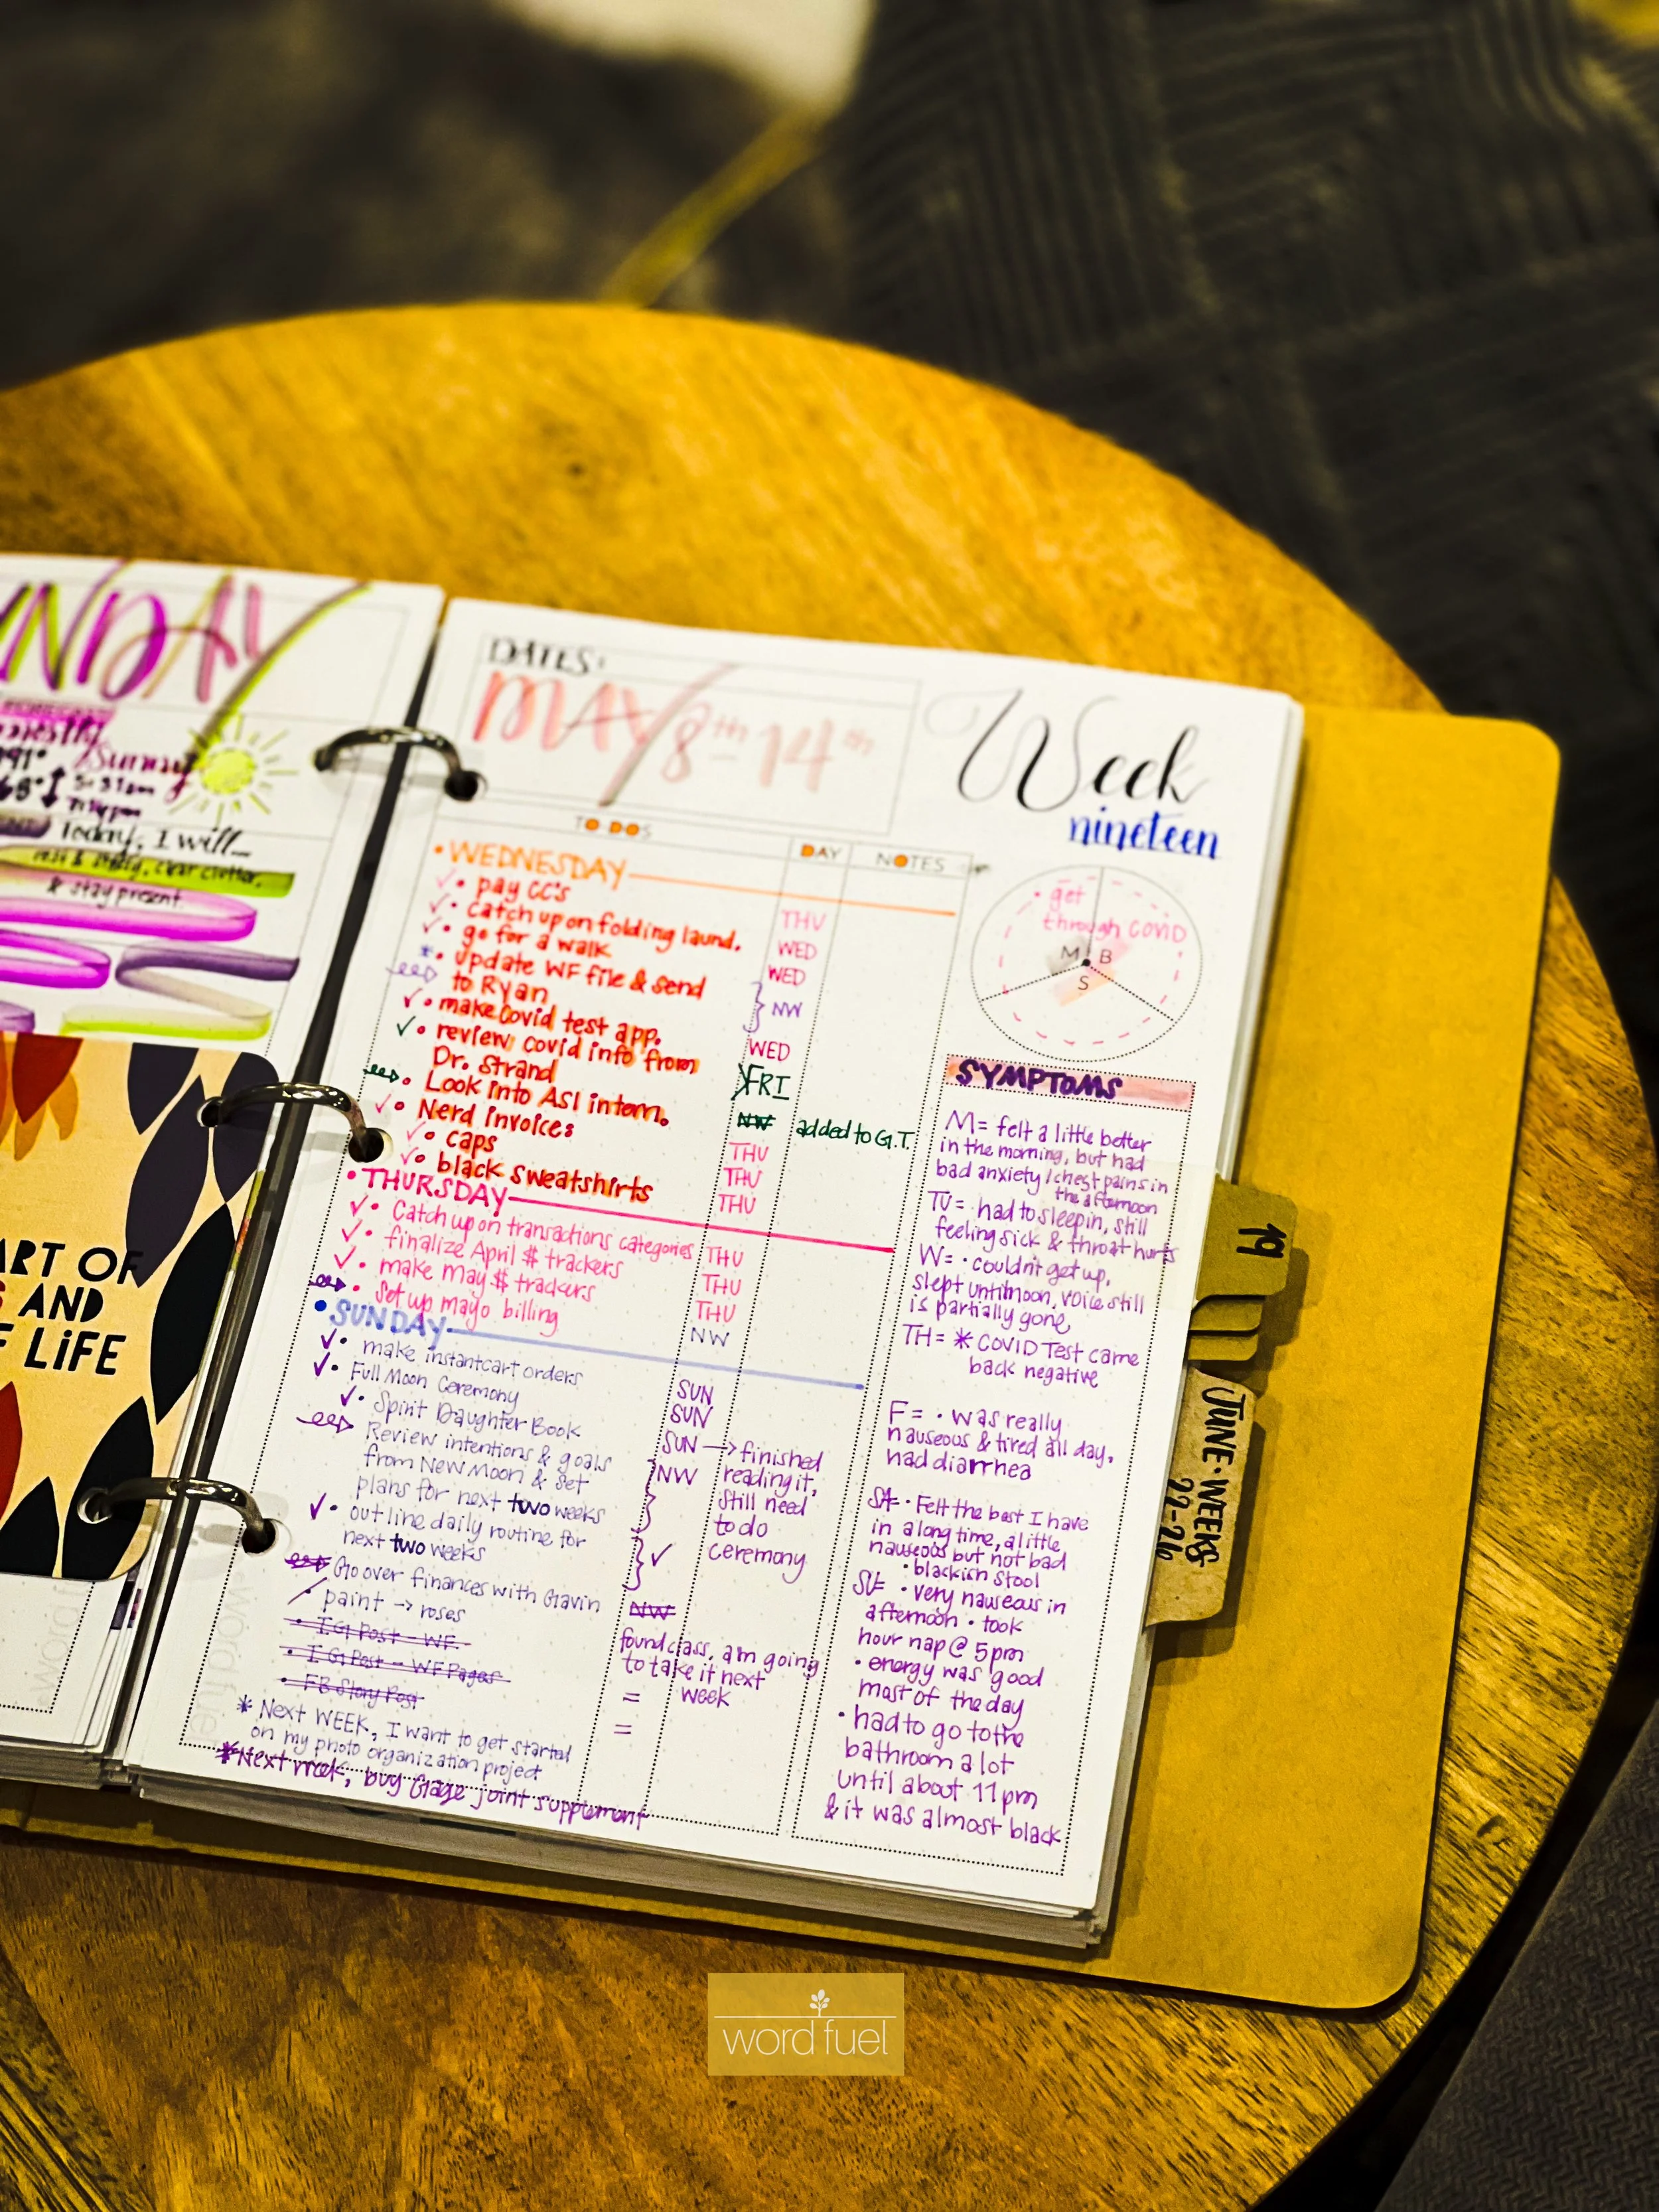 SUNDAY
mostly
Sunny
91°
68°
5:31am
7:14pm
Today, I will
rest & study, clear clutter,
& stay present.
ART OF
AND
LiFE
DATES:
MAY 8th-14th
Week
nineteen
TO DOS
DAY
NOTES
• WEDNESDAY
✓• pay CC's THU
✓• catch up on folding laund. WED
✓• go for a walk WED
*• update WF file & send
to Ryan NW
✓• make Covid test app. WED
✓• review covid info from
Dr. Strand FRI
• Look into ASI intom. NW added to G.T.
✓• Nerd invoices THU
✓• caps THU
✓• black sweatshirts THU
• THURSDAY
✓• Catch up on transactions categories THU
✓• finalize April $ trackers THU
✓• make may $ trackers THU
• Set up mayo billing NW
• SUNDAY
✓• make instantcart orders SUN
✓• Full Moon Ceremony SUN
✓• Spirit Daughter Book SUN → finished
reading it,
still need
to do
ceremony
Review intentions & goals NW
from New Moon & set
plans for next two weeks
✓• outline daily routine for
next two weeks ✓
Go over finances with Gavin NW
paint → roses found class, am going
to take it next
week
• IG Post - WF =
• IG Post - WF Pages =
• FB Story Post
* Next WEEK, I want to get started
on my photo organization project
*Next week, buy Gage joint supplement
• get
through COVID
M B
S
SYMPTOMS
M = felt a little better
in the morning, but had
bad anxiety / chest pains in
the afternoon
TU = had to sleep in, still
feeling sick & throat hurts
W = • couldn't get up,
slept until noon, voice still
is partially gone
TH = * COVID Test came
back negative
F = • was really
nauseous & tired all day.
had diarrhea
SA = • Felt the best I have
in a long time, a little
nauseous but not bad
• blackish stool
SU = • very nauseous in
afternoon • took
hour nap @ 5pm
• energy was good
most of the day
• had to go to the
bathroom a lot
until about 11pm
& it was almost black
19
JUNE • WEEKS
22-26
word fuel
word fuel